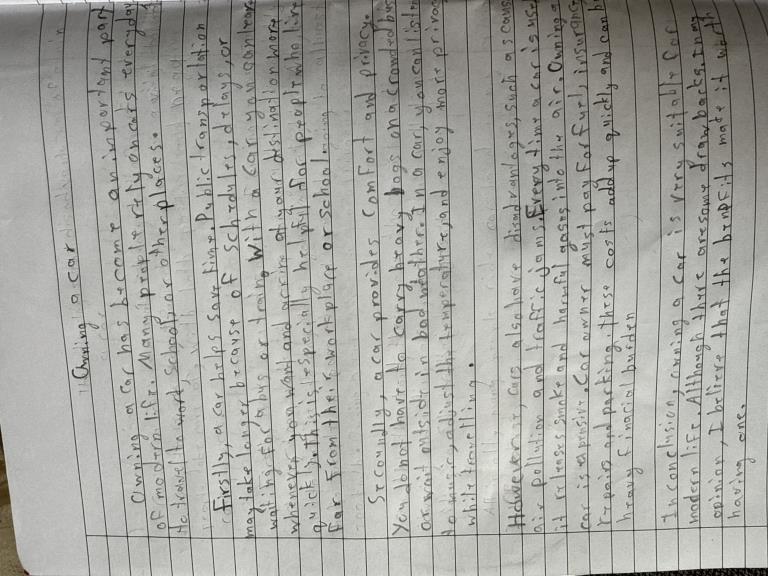 Owning a car
Owning a car has become an important part
of modern life. Many people rely on cars everyday
to travel to word, school, or other places.
Firstly, a car helps save time. Public transportation
may take longer because of schedules, delays, or
waiting for a bus or train. With a car, you can leave
whenever you want and arrive at your destination more
quickly. This is especially helpful for people who live
far from their workplace or school.
Secoundly, a car provides comfort and privacy.
You do not have to carry heavy bags on a crowded bus
or wait outside in bad weather. In a car, you can listen
to music, adjust the temperature, and enjoy more privacy
while travelling.
However, cars also have disadvantages, such as
air pollution and traffic jams. Every time a car is used
it releases smoke and harmful gases into the air. Owning a
car is expensive. Car owner must pay for fuel, insurance
repairs and parking. these costs add up quickly and can
heavy finacial burden
In conclusion, owning a car is very suitable for
modern life. Although there are some drawbacks. In my
opinion, I believe that the benefits made it worth
having one.